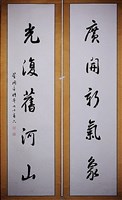 廣開新氣象
光復舊河山